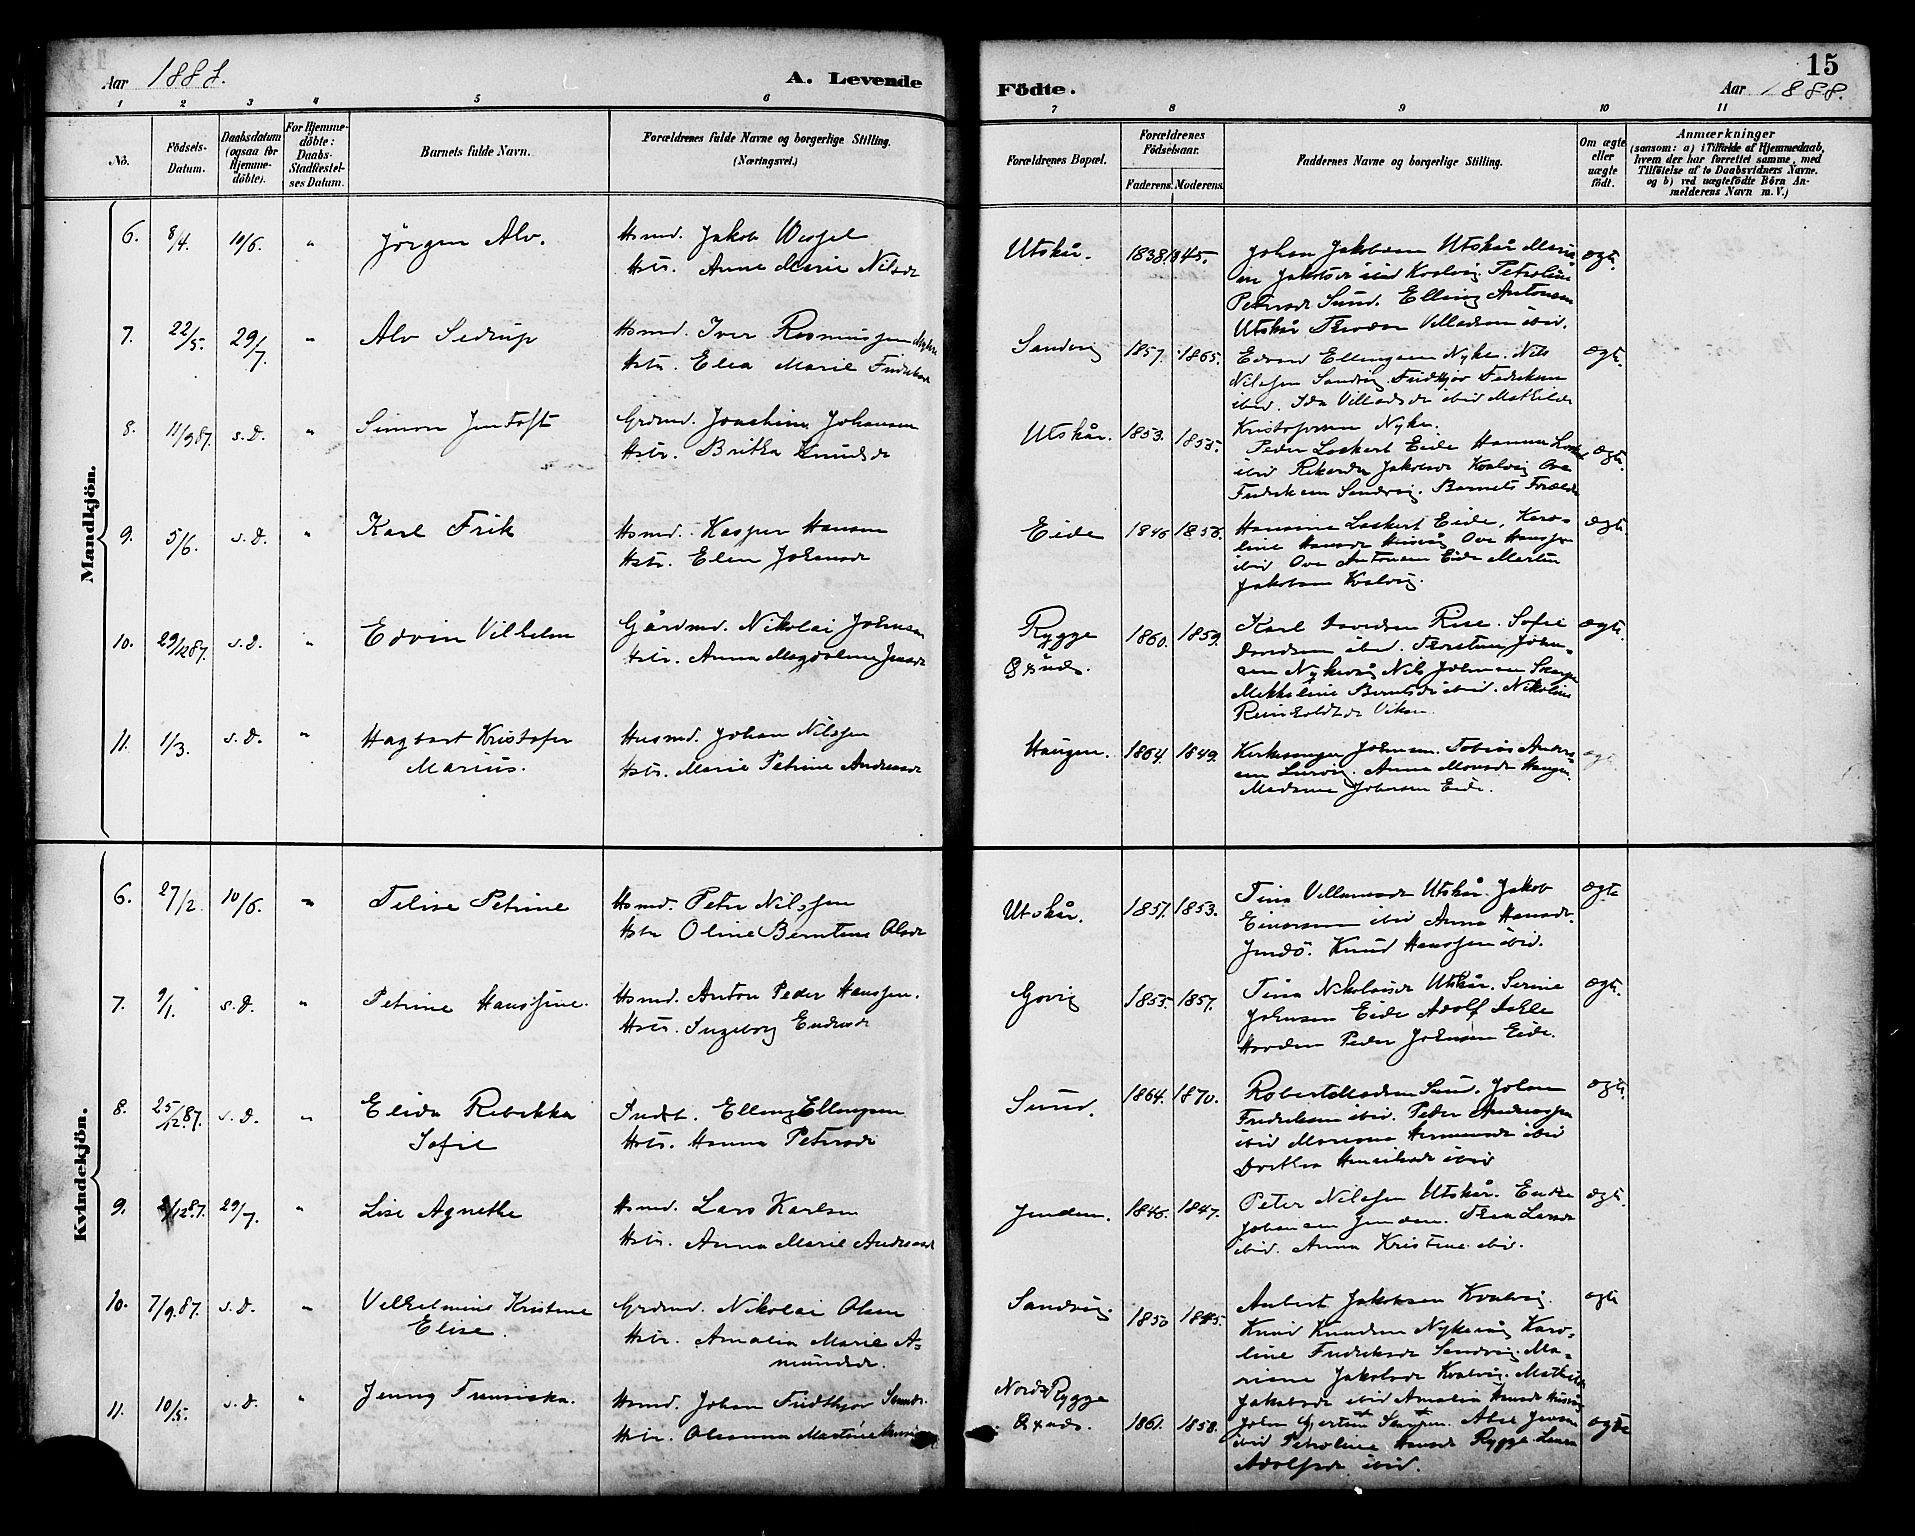 15
Aar 1888.
A. Levende
Födte.
Aar 1888.
1 2 3 4 5 6 7 8 9 10 11
No.
Födsels-
Datum.
Daabsdatum
(ogsaa for
Hjemme-
döbte).
For Hjemme-
döbte:
Daabs-
Stadfæstel-
ses Datum.
Barnets fulde Navn.
Forældrenes fulde Navne og borgerlige Stilling.
(Næringsvei.)
Forældrenes Bopæl.
Forældrenes
Födselsaar.
Faderens. Moderens.
Faddernes Navne og borgerlige Stilling.
Om ægte
eller
uægte
födt.
Anmærkninger
(saasom: a) i Tilfælde af Hjemmedaab,
hvem der har forrettet samme, med
Tilföielse af to Daabsvidners Navne.
og b) ved uægtefödte Börn An-
melderens Navn m. V.)
Mandkjön.
6. 8/4. 10/6. " Jörgen Alv.
Hsmd. Jakob Wessel
Hstr. Anne Marie Nilsdr
Utskår. 1838. 1845.
Johan Jakobsen Utskår
Jakobsdr ibid Kvalvig Petroline
Petersdr Sund. Elling Antonsen
Utskår Villadsen ibid.
ægte.
7. 22/5. 29/7. " Alv Sedrup
Hsmd. Iver Rasmussen
Hstr. Elea Marie
Sandvig 1857. 1865.
Edvard Ellingsen Nyke. Nils
Nilssen Sandvig. Fridthjov Fedriksen
ibid. Ida Villadsdr ibid Mathilde
Kristofersen Nyke.
ægte.
8. 11/9 87. s.D. " Simon Jentoft
Grdmd. Joachim Johansen
Hstr. Britha Knudsdr
Utskår. 1853. 1855.
Peder Lockert Eide Hanna
ibid Rikarda Jakobsdr Kvalvig Ove
Fredriksen Sandvig. Barnets Forældre
ægte.
9. 5/6. s.D. " Karl Frik
Hsmd. Kasper Hansen
Hstr. Elen Johnsdr
Eide 1846 1856.
Hansine Lockert Eide. Karo-
line Hansdr Ove Hanssen
ibid Ove Antonsen Eide Martin
Jakobsen Kvalvig.
ægte.
10. 29/12 87. s.D. " Edvin Vilhelm
Gårdmd. Nikolai Johnsen
Hstr. Anna Magdalene Jensdr
Rygge
1860. 1859.
Karl Davidsen Rise. Sofie
Davidsen ibid. Johan-
sen Nykvåg Nils Johnsen
Berntsdr ibid. Nikoline
Reinholdtdr Viken
ægte.
11. 1/3. s.D. " Hagbart Kristofer
Marius.
Husmd. Johan Nilssen
Hstr. Marie Petrine Andreasdr
Haugen. 1864. 1849.
Kirkesanger Johnsen. Tobias Andre-
sen. Anna Monsdr Haugen.
Madame Johnsen Eide.
ægte
Kvindekjön.
6. 27/2. 10/6. " Telise Petrine
Hsmd. Peter Nilssen
Hstr Oline Berntine Olsdr
Utskår. 1857. 1853.
Tina Villumsdr Utskår. Jakob
Einarsen ibid Anna Hansdr.
Knud Hanssen ibid.
ægte
7. 9/1. s.D. " Petrine Hanssine.
Hsmd. Anton Peder Hanssen.
Hstr. Ingeborg Endresdr
Govig 1855 1857.
Tina Nikolaisdr Utskår. Serine
Johnsen Eide Adolf
Peder Johnsen Eide.
ægte.
8. 25/12 87. s.D. " Elida Rebekka
Sofie
Indst. Elling Ellingsen
Hstr. Hanna Petersdr
Sund. 1864. 1870.
Robert Madsen Sund. Johan
Fredriksen ibid. Peder Andreassen
ibid Mariana ibid
Dorthea Henriksdr ibid
ægte.
9. 2/12 87. 29/7. " Lise Agnethe
Hsmd. Lars Karlsen
Hstr. Anna Marie Andreasdr
Jenden. 1846. 1847.
Peter Nilssen Utskår. Endre
Johansen Jenden. Thea Larsdr
ibid. Anna Kristine ibid.
ægte.
10. 7/9. 87. s.D. " Vilhelmine Kristine
Elise.
Grdmd. Nikolai Olsen
Hstr. Amalia Marie A-
mundsdr.
Sandvig. 1850 1845.
Anbert Jakobsen Kvalvig.
Knud Knudsen Nykvåg Karo-
line Fredriksdr Sandvig. Ma-
riane Jakobsdr Kvalvig. Mathilde
Jakobsdr ibid Amalia
ægte
11. 10/5. s.D. " Jenny Fransiska.
Hsmd. Johan Fridthjov
Hstr. Oleanna Martine
Nordre Rygge
1861. 1858.
John Gjertsen. Abel Jensen
ibid Petroline Hansdr Rygge. Lina
Adolfsdr ibid.
ægte